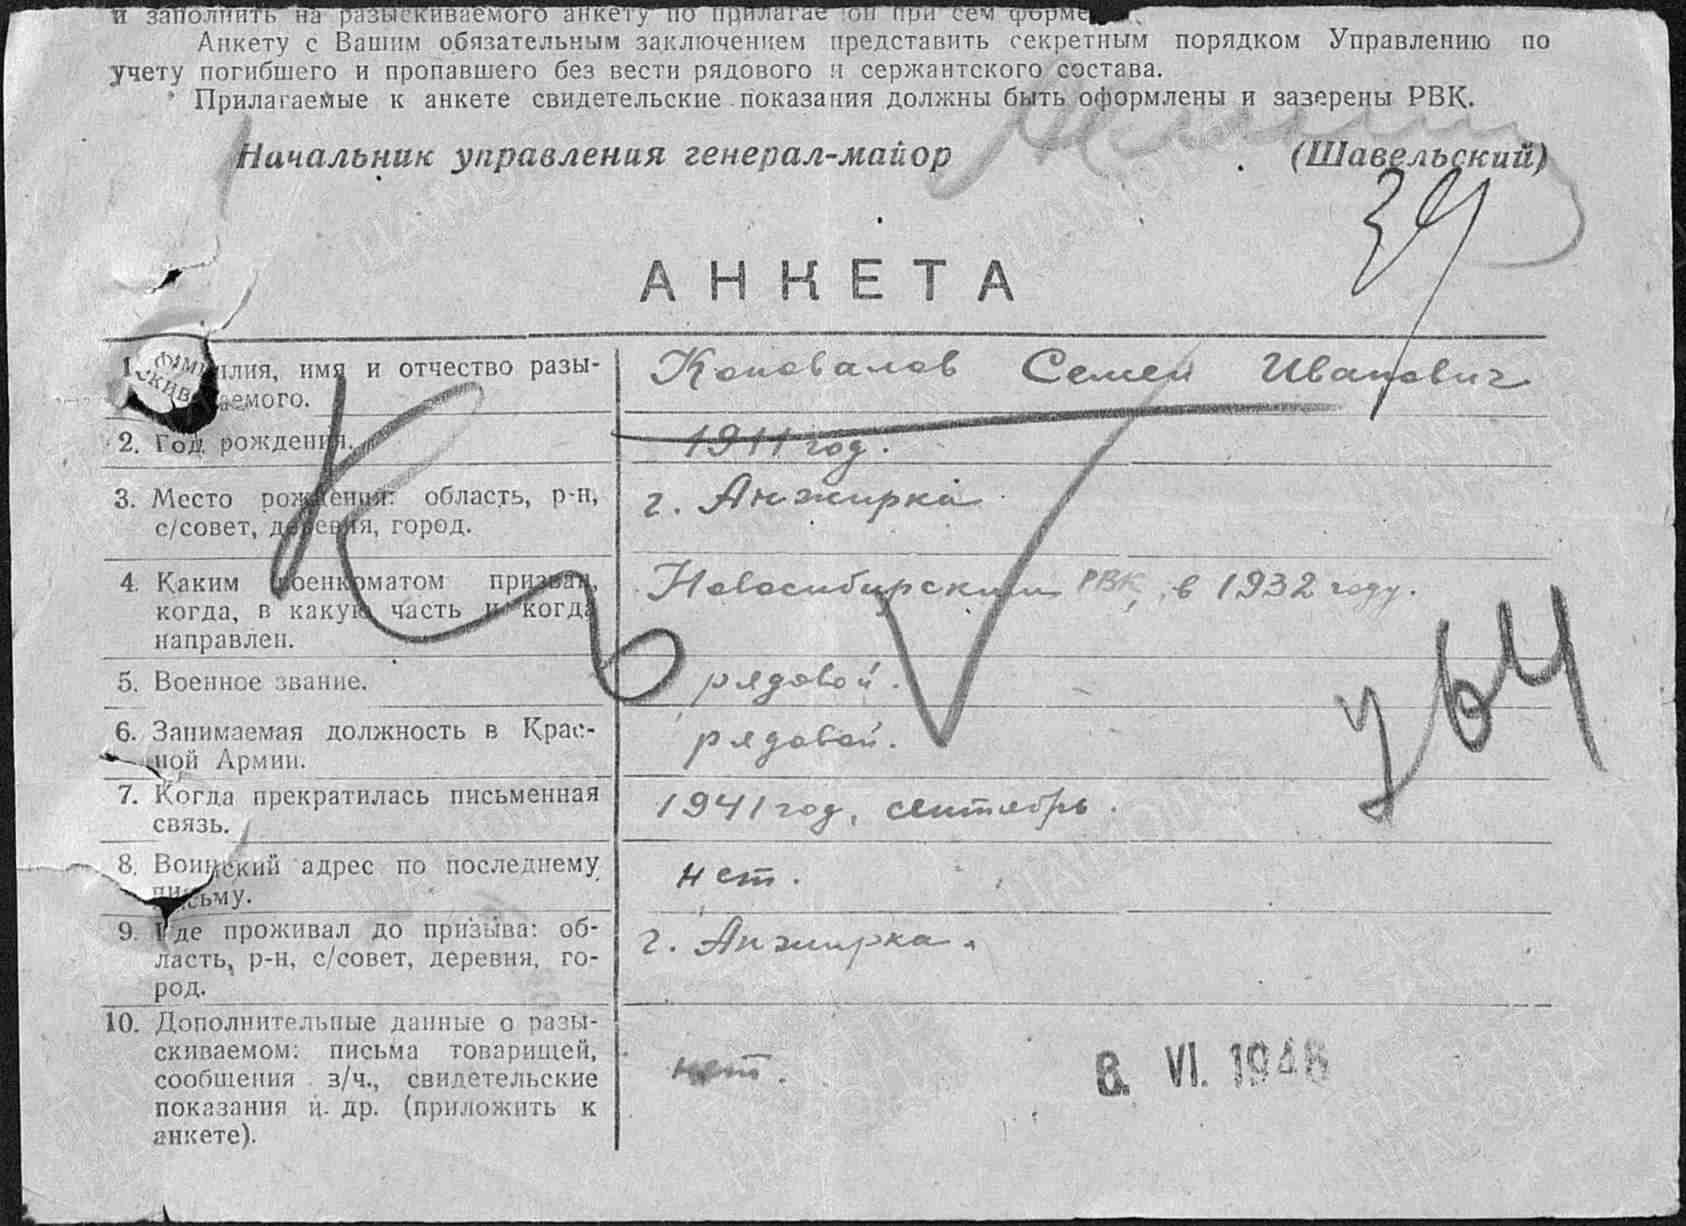 и заполнить на разыскиваемого анкету по прилагае ой при сем форме
Анкету с Вашим обязательным заключением представить секретным порядком Управлению по
учету погибшего и пропавшего без вести рядового и сержантского состава.
Прилагаемые к анкете свидетельские показания должны быть оформлены и зазерены РВК.
Начальник управления генерал-майор (Шавельский)
АНКЕТА
1. илия, имя и отчество разы-
аемого.
Коновалов Семен Иванович
2. Год рождения.
1911 год.
3. Место рождения: область, р-н,
с/совет, деревня, город.
г. Анжирка
4. Каким военкоматом призван,
когда, в какую часть и когда
направлен.
Новосибирским РВК, в 1932 году.
5. Военное звание.
рядовой.
6. Занимаемая должность в Крас-
ной Армии.
рядовой.
7. Когда прекратилась письменная
связь.
1941 год, сентябрь.
8. Воинский адрес по последнему
письму.
нет.
9. Где проживал до призыва: об-
ласть, р-н, с/совет, деревня, го-
род.
г. Анжирка.
10. Дополнительные данные о разы-
скиваемом: письма товарищей,
сообщения з/ч., свидетельские
показания и др. (приложить к
анкете).
нет.
8. VI. 1946